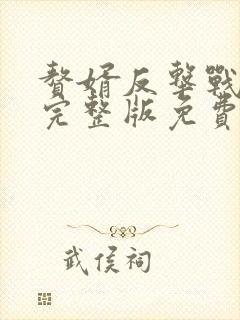 赘婿反擊戰
完整版免費
武侯祠